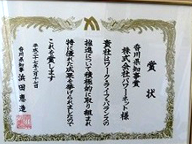 賞状
香川県知事賞
株式会社パワーネット様
貴社はワーク・ライフ・バランスの
推進について積極的に取り組まれ
特に優れた成果を挙げられましたので
これを賞します
平成二十七年二月十二日
香川県知事 浜田恵造